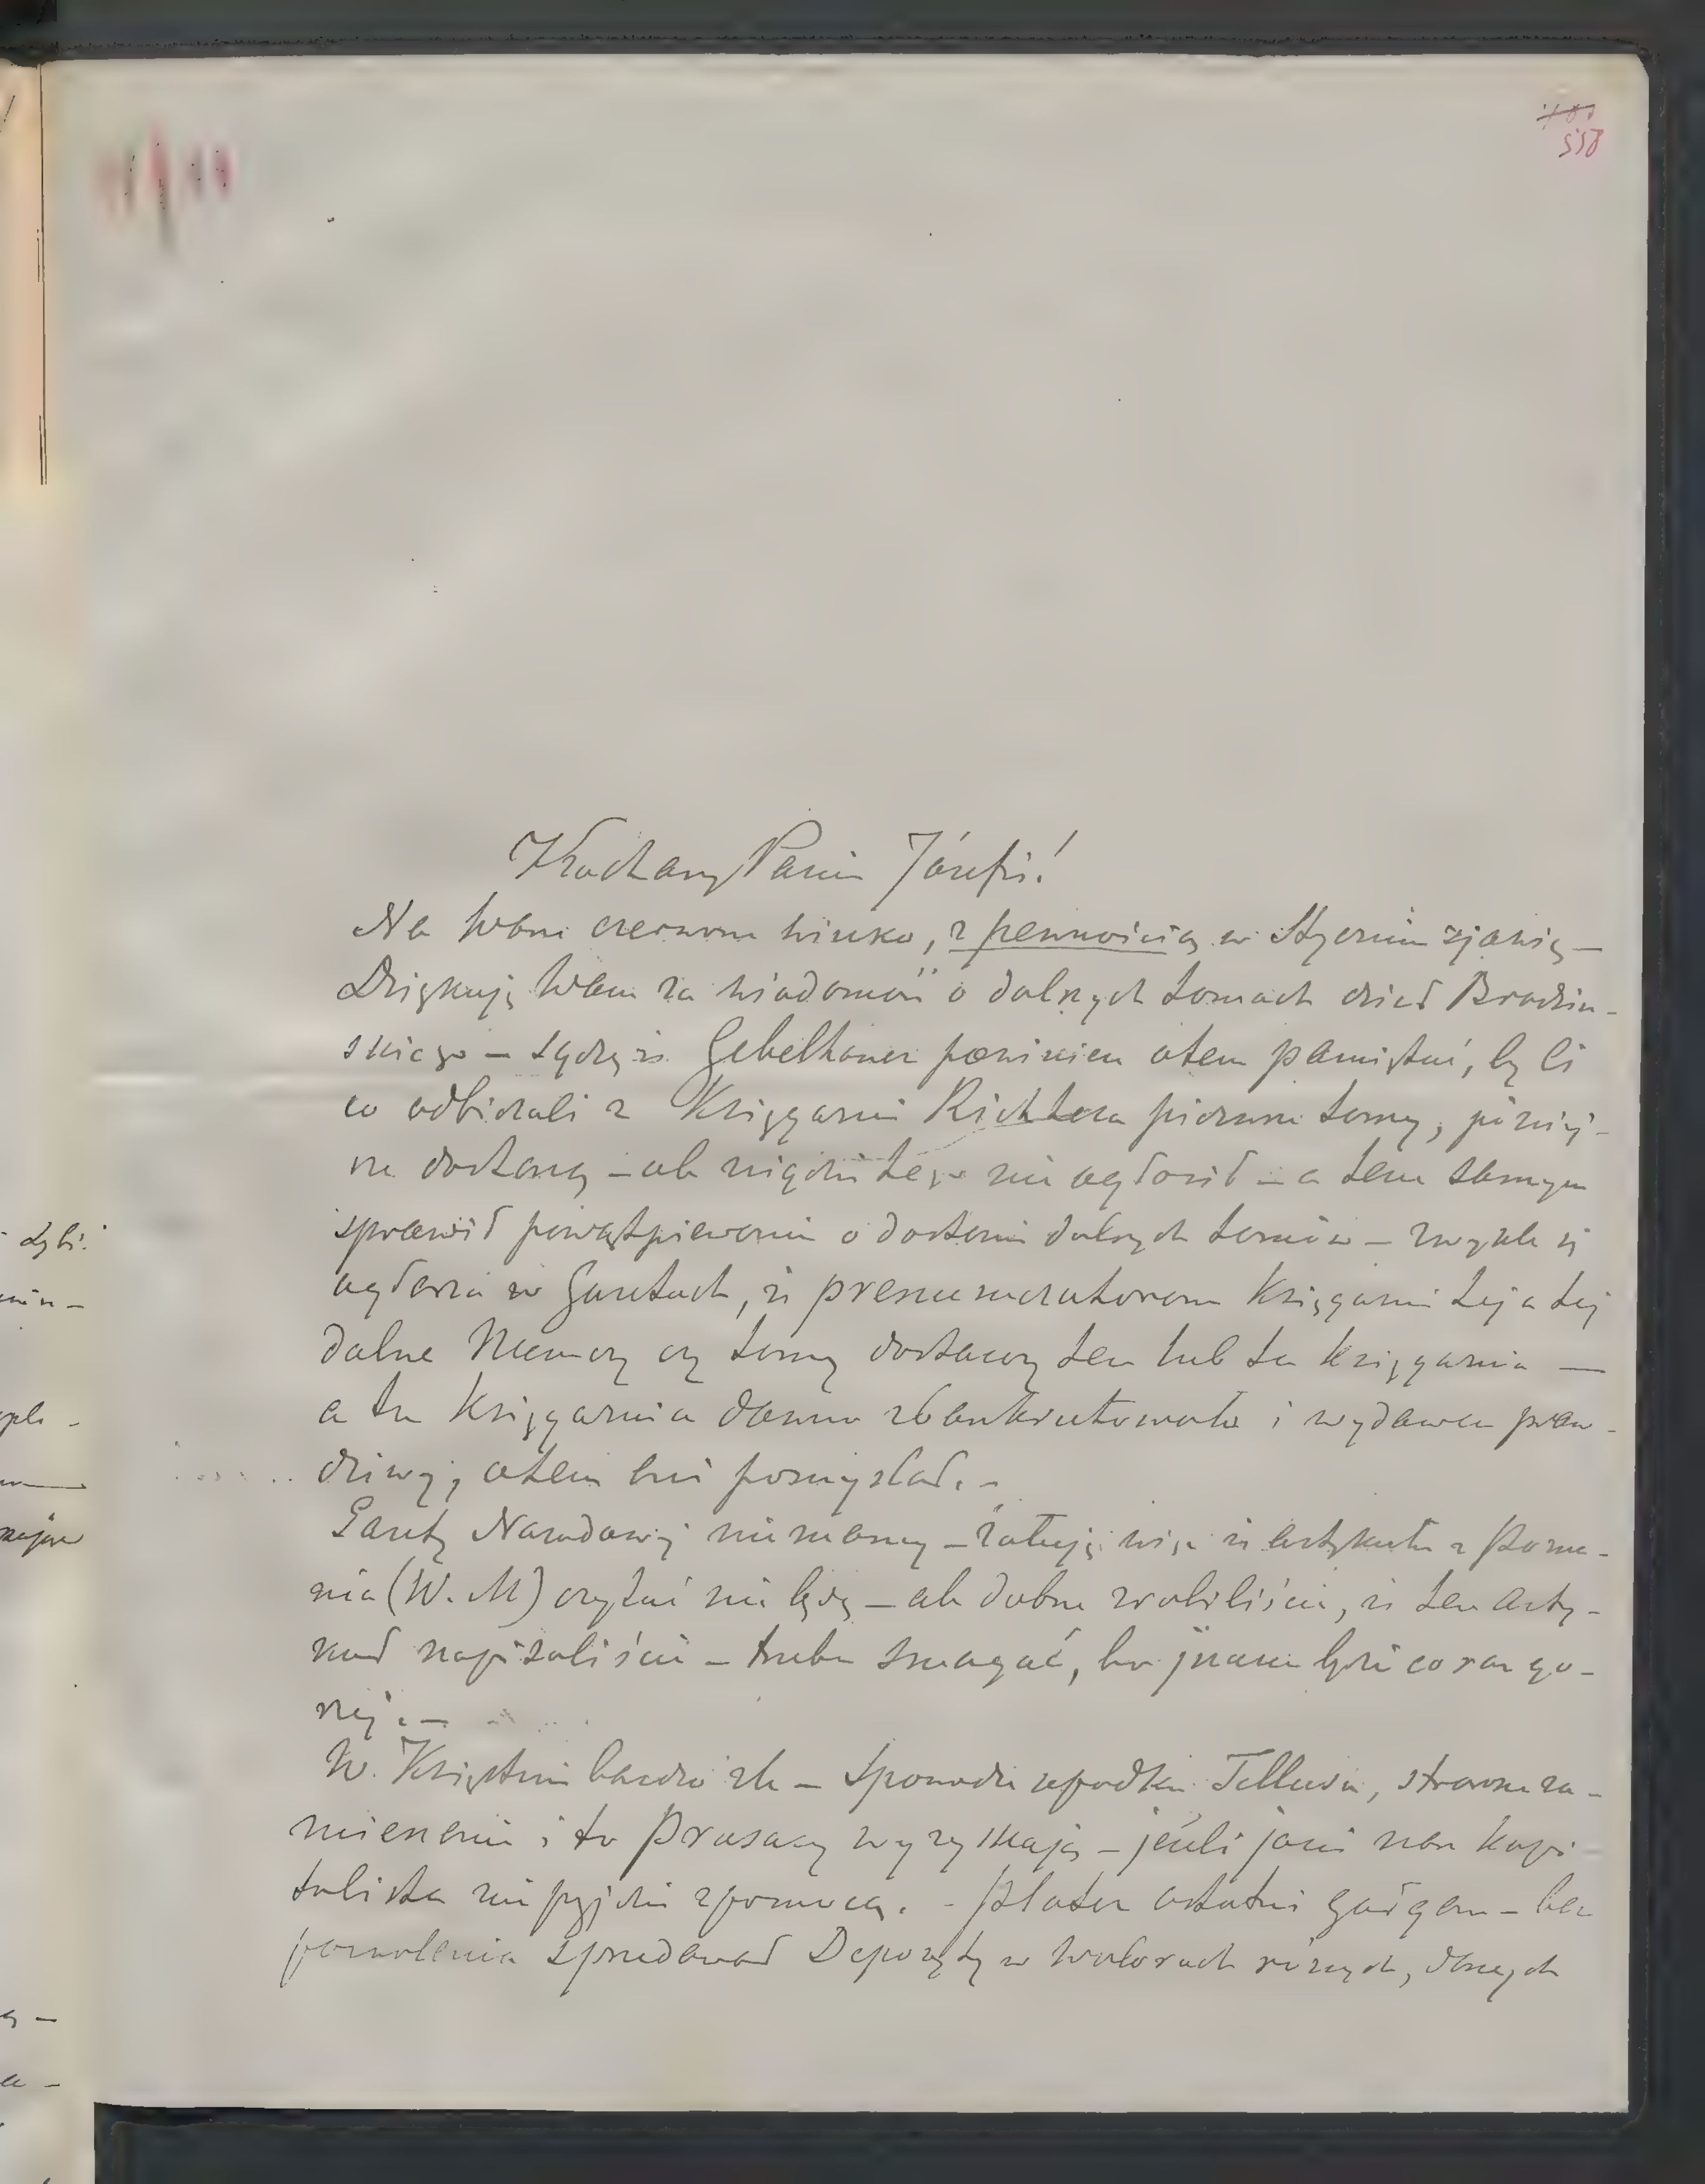 558
Kochany Panie Józefie!
Na Wasze czerwone winko, z pewnością w Styczniu zjawię —
Dziękuję Wam za wiadomość o dalszych tomach dzieł Brodziń-
skiego — sądzę iż Gebethner powinien otem pamiętać, by ci
co odbierali z Księgarni Richtera pierwsze tomy, późniéj-
sze dostaną — ale nigdzie tego nie ogłosił — a tem samym
sprawił powątpiewanie o dostaniu dalszych tomów — zwykle się
ogłasza w Gazetach, iż prenumeratorom Księgarni tej a tej
dalsze Numery czy tomy dostarczy ten lub ta księgarnia —
a tu Księgarnia dawno zbankrutowała i wydawca praw-
dziwy, otem ani pomyślał. —
Gazety Narodowéj nie mamy — żałuję więc iż artykułu z Pozna-
nia (W. M) czytać nie będę — ale dobrze zrobiliście, iż ten arty-
kuł napisaliście — trzeba smagać, bo inaczej będzie coraz go-
rzéj. —
W. Księstwie bardzo źle — Spowodu upadku Tellusa, straszne za-
mieszanie i to Prusacy wyzyskają — jeżeli jaki nasz kapi-
talista nie przyjdzie z pomocą. - Plater ostatni gałgan — bez
pozwolenia sprzedawał Depozyty w Walorach różnych, danych